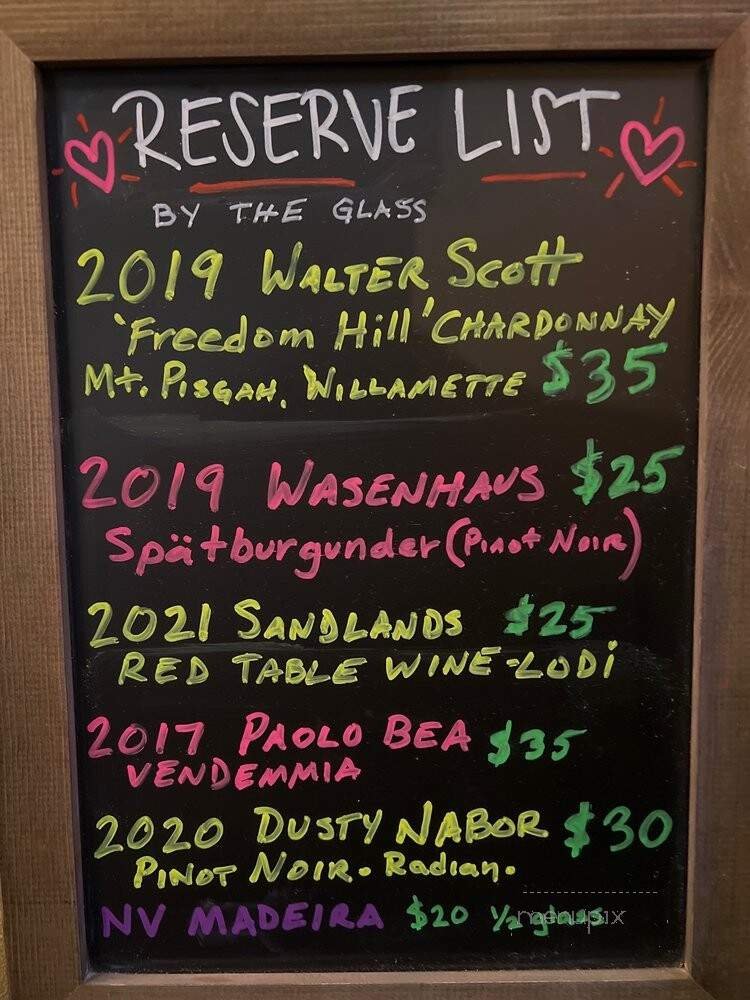 RESERVE LIST
BY THE GLASS
2019 WALTER Scott
'Freedom Hill' CHARDONNAY
Mt. PISGAH, WILLAMETTE $35
2019 WASENHAUS $25
Spätburgunder (Pinot Noir)
2021 SANDLANDS $25
RED TABLE WINE - LODi
2017 PAOLO BEA $35
VENDEMMIA
2020 DUSTY NABOR $30
PINOT NOIR. Radian.
NV MADEIRA $20 1/2 glass
menupix